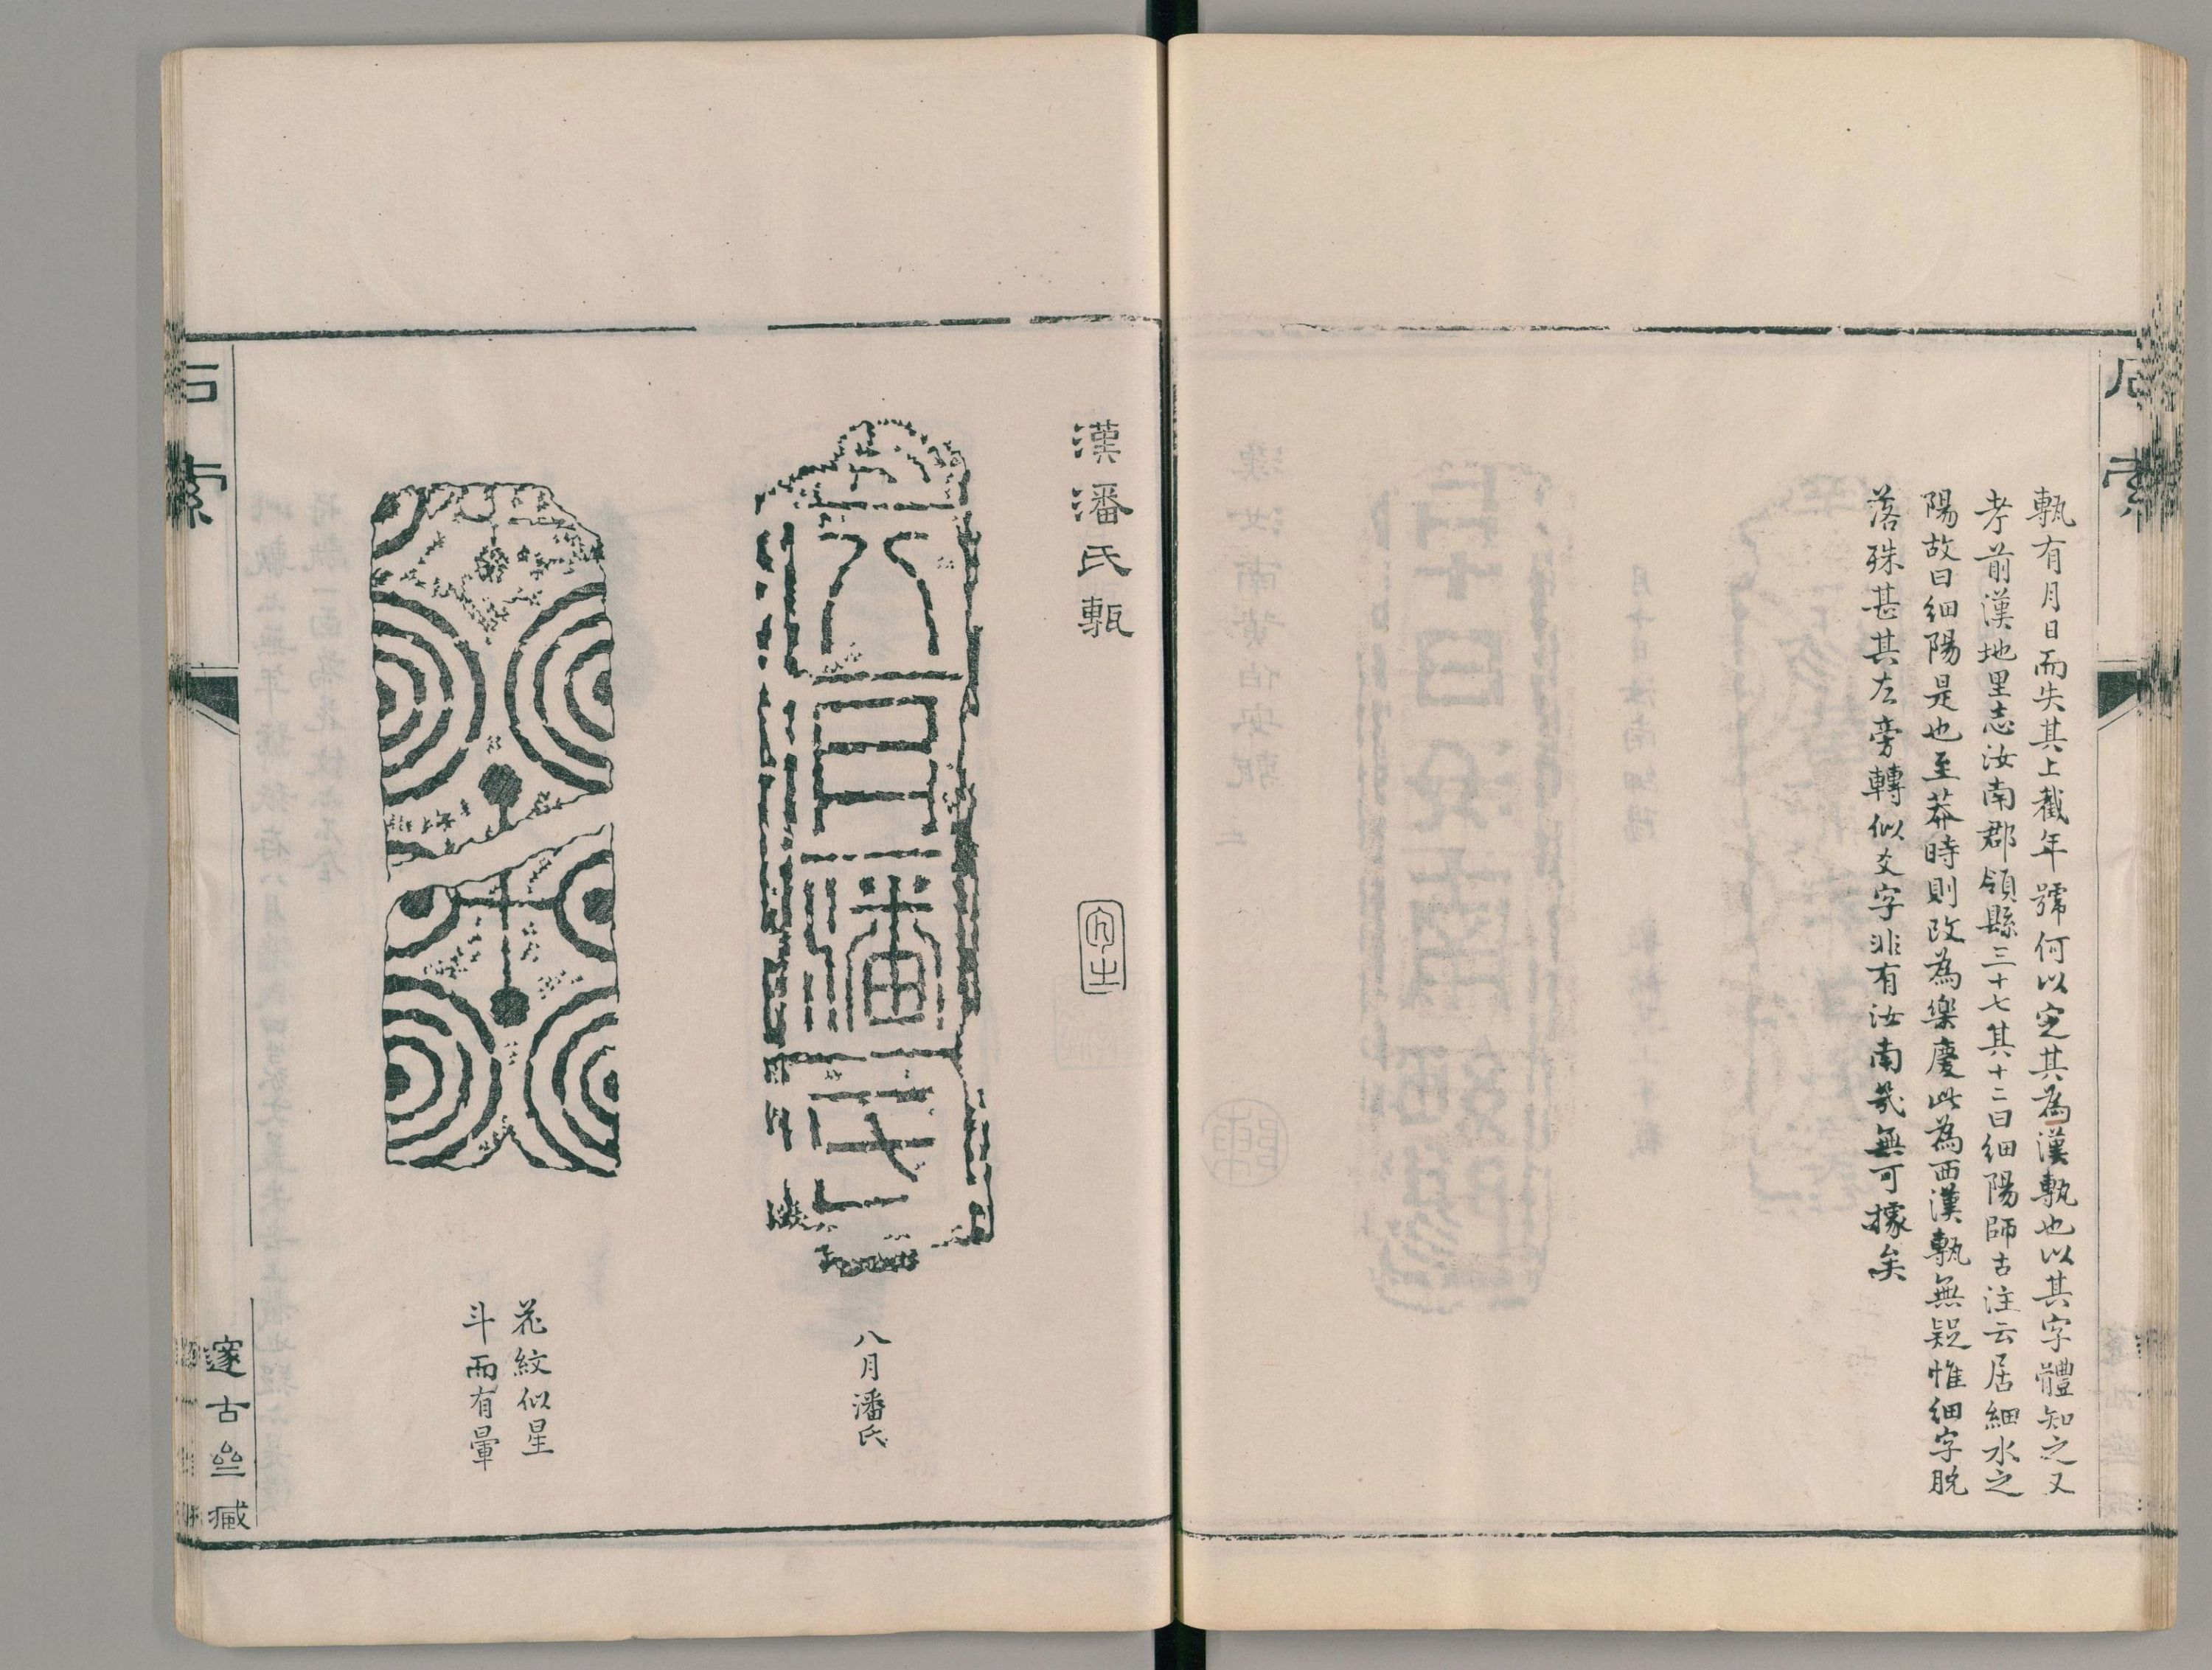 石索
甎有月日而失其上截年號何以定其為漢甎也以其字體知之又
考前漢地里志汝南郡領縣三十七其十二曰細陽師古注云居細水之
陽故曰細陽是也至莽時則改為樂慶此為西漢甎無疑惟細字脫
落殊甚其左旁轉似文字非有汝南幾無可據矣
漢潘氏甎
八月潘氏
八月潘氏
花紋似星
斗而有暈
石索
邃古亝臧